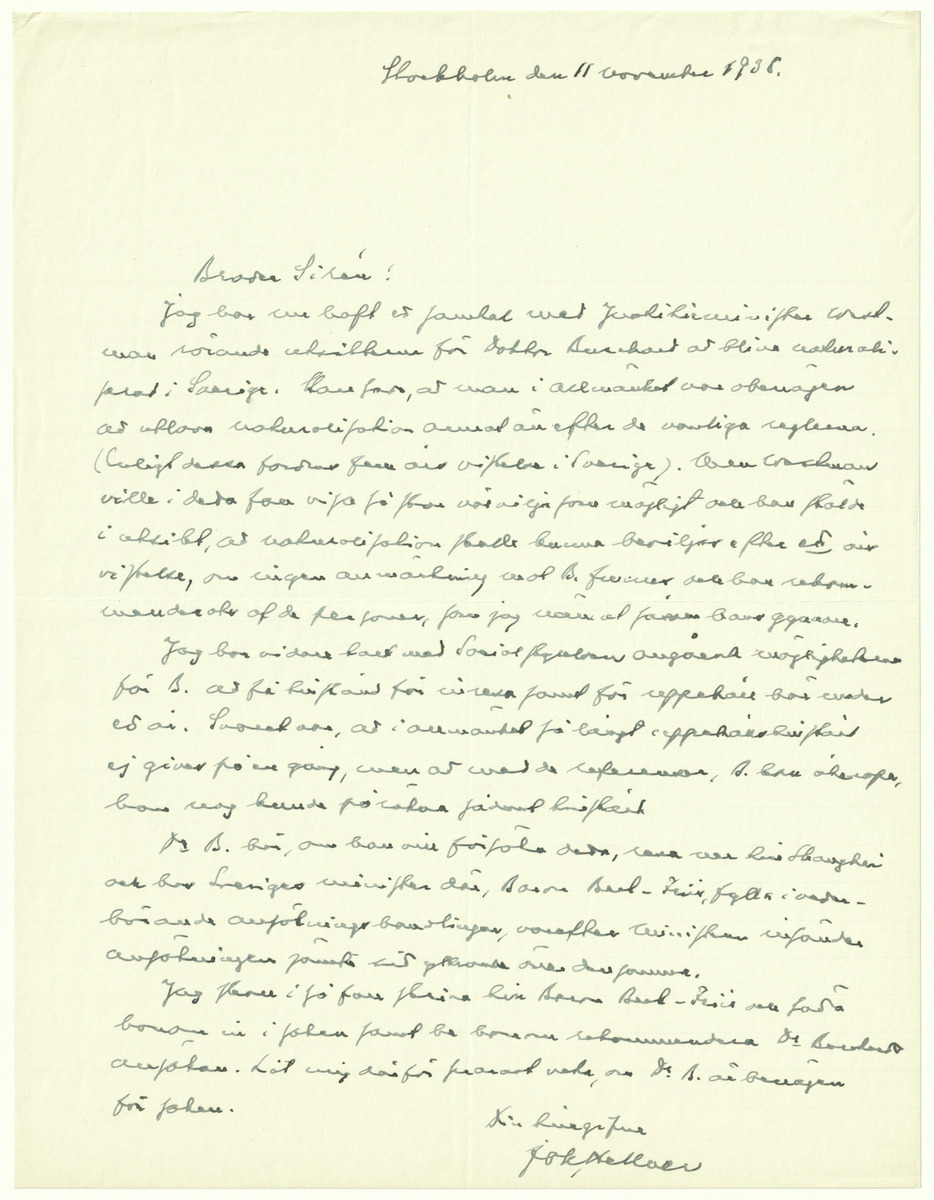 Stockholm den 11 november 1938.
Broder Sirén!
Jag har nu haft ett samtal med Justitieminister West-
man rörande utsikterna för Doktor Burchard att bliva naturali-
serad i Sverige. Han sade, att man i allmänhet var obenägen
att utlova naturalisation annat än efter de vanliga reglerna.
(Enligt dessa fordras fem års vistelse i Sverige). Men Westman
ville i detta fall visa så stor välvilja som möjligt och han ställde
i utsikt, att naturalisation skulle kunna beviljas efter ett års
vistelse, om ingen anmärkning mot B. finnes och han rekom-
menderats af de personer, som jag nämnt såsom hans
Jag har vidare talat med Socialstyrelsen angående möjligheterna
för B. att få tillstånd för inresa samt för uppehåll här under
ett år. Svaret var, att i allmänhet så långt uppehållstillstånd
ej gives på en gång, men att med de referenser, B. kan åberopa,
han nog kunde påräkna sådant tillstånd
Dr B. bör, om han vill försöka detta, resa ner till Shanghai
och hos Sveriges minister där, Baron Beck-Friis, fylla i veder-
börande ansökningshandlingar, varefter Ministern insänder
ansökningen jämte sitt yttrande över densamma.
Jag skall i så fall skriva till Baron Beck-Friis och sätta
honom in i saken samt be honom rekommendera Dr Burchards
ansökan. Låt mig därför snarast veta, om Dr B. är benägen
för saken.
Din tillgifne
Joh Hellner